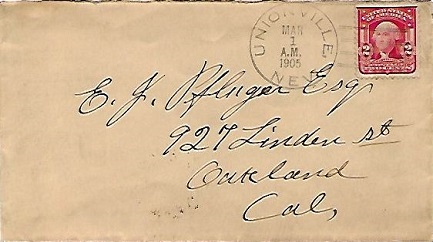 UNIONVILLE,
MAR
1
A.M.
1905
NEV.
UNITED STATES
OF AMERICA
2 2
E. J. Pfluger Esq
927 Linden st
Oakland
Cal,